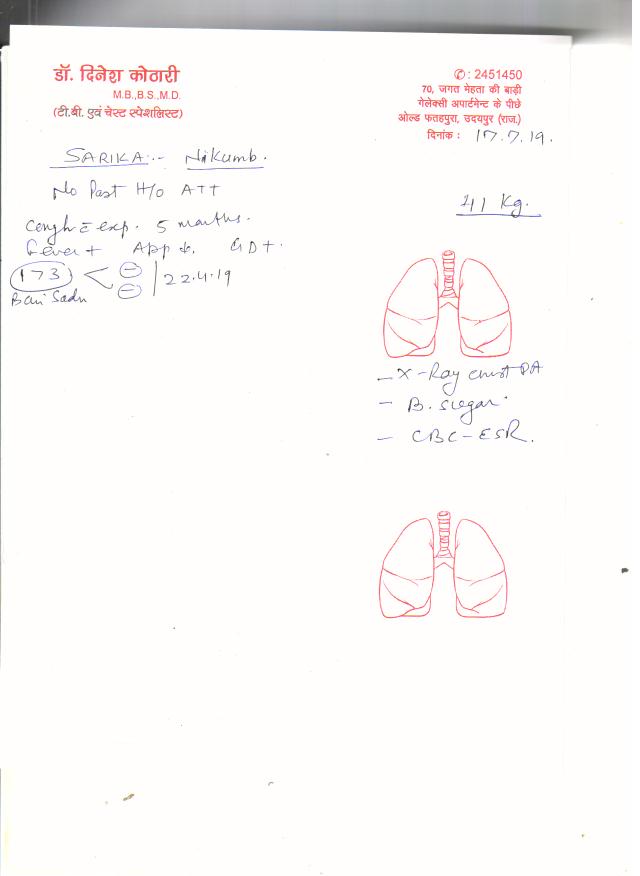 डॉ. दिनेश कोठारी
M.B.,B.S.,M.D.
(टी.बी. एवं चेस्ट स्पेशलिस्ट)
✆: 2451450
70, जगत मेहता की बाड़ी
गेलेक्सी अपार्टमेन्ट के पीछे
ओल्ड फतहपुरा, उदयपुर (राज.)
दिनांक : 17.7.19.
SARIKA:- Nikumb.
No Past H/o ATT
41 Kg.
Cough c̄ exp. 5 months.
Fever + App ↓. GD+.
173 < ⊖ ⊖ | 22.4.19
Bari Sadri
- X-Ray chest PA
- B. sugar
- CBC-ESR.